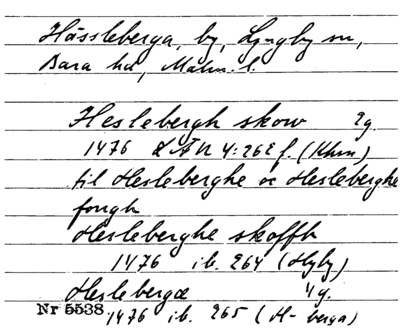 Hässleberga, by, Lyngby sn,
Bara hd, Malm. l.
Heslebergh skow 2g.
1476 LÄU 4:262 f. (Khvn)
til Hesleberghe oc Hesleberghe
fongh
Hesleberghe skoffh
1476 ib. 264 (Hyby)
Heslebergæ 4g.
Nr 5538
1476 ib. 265 (H-berga)